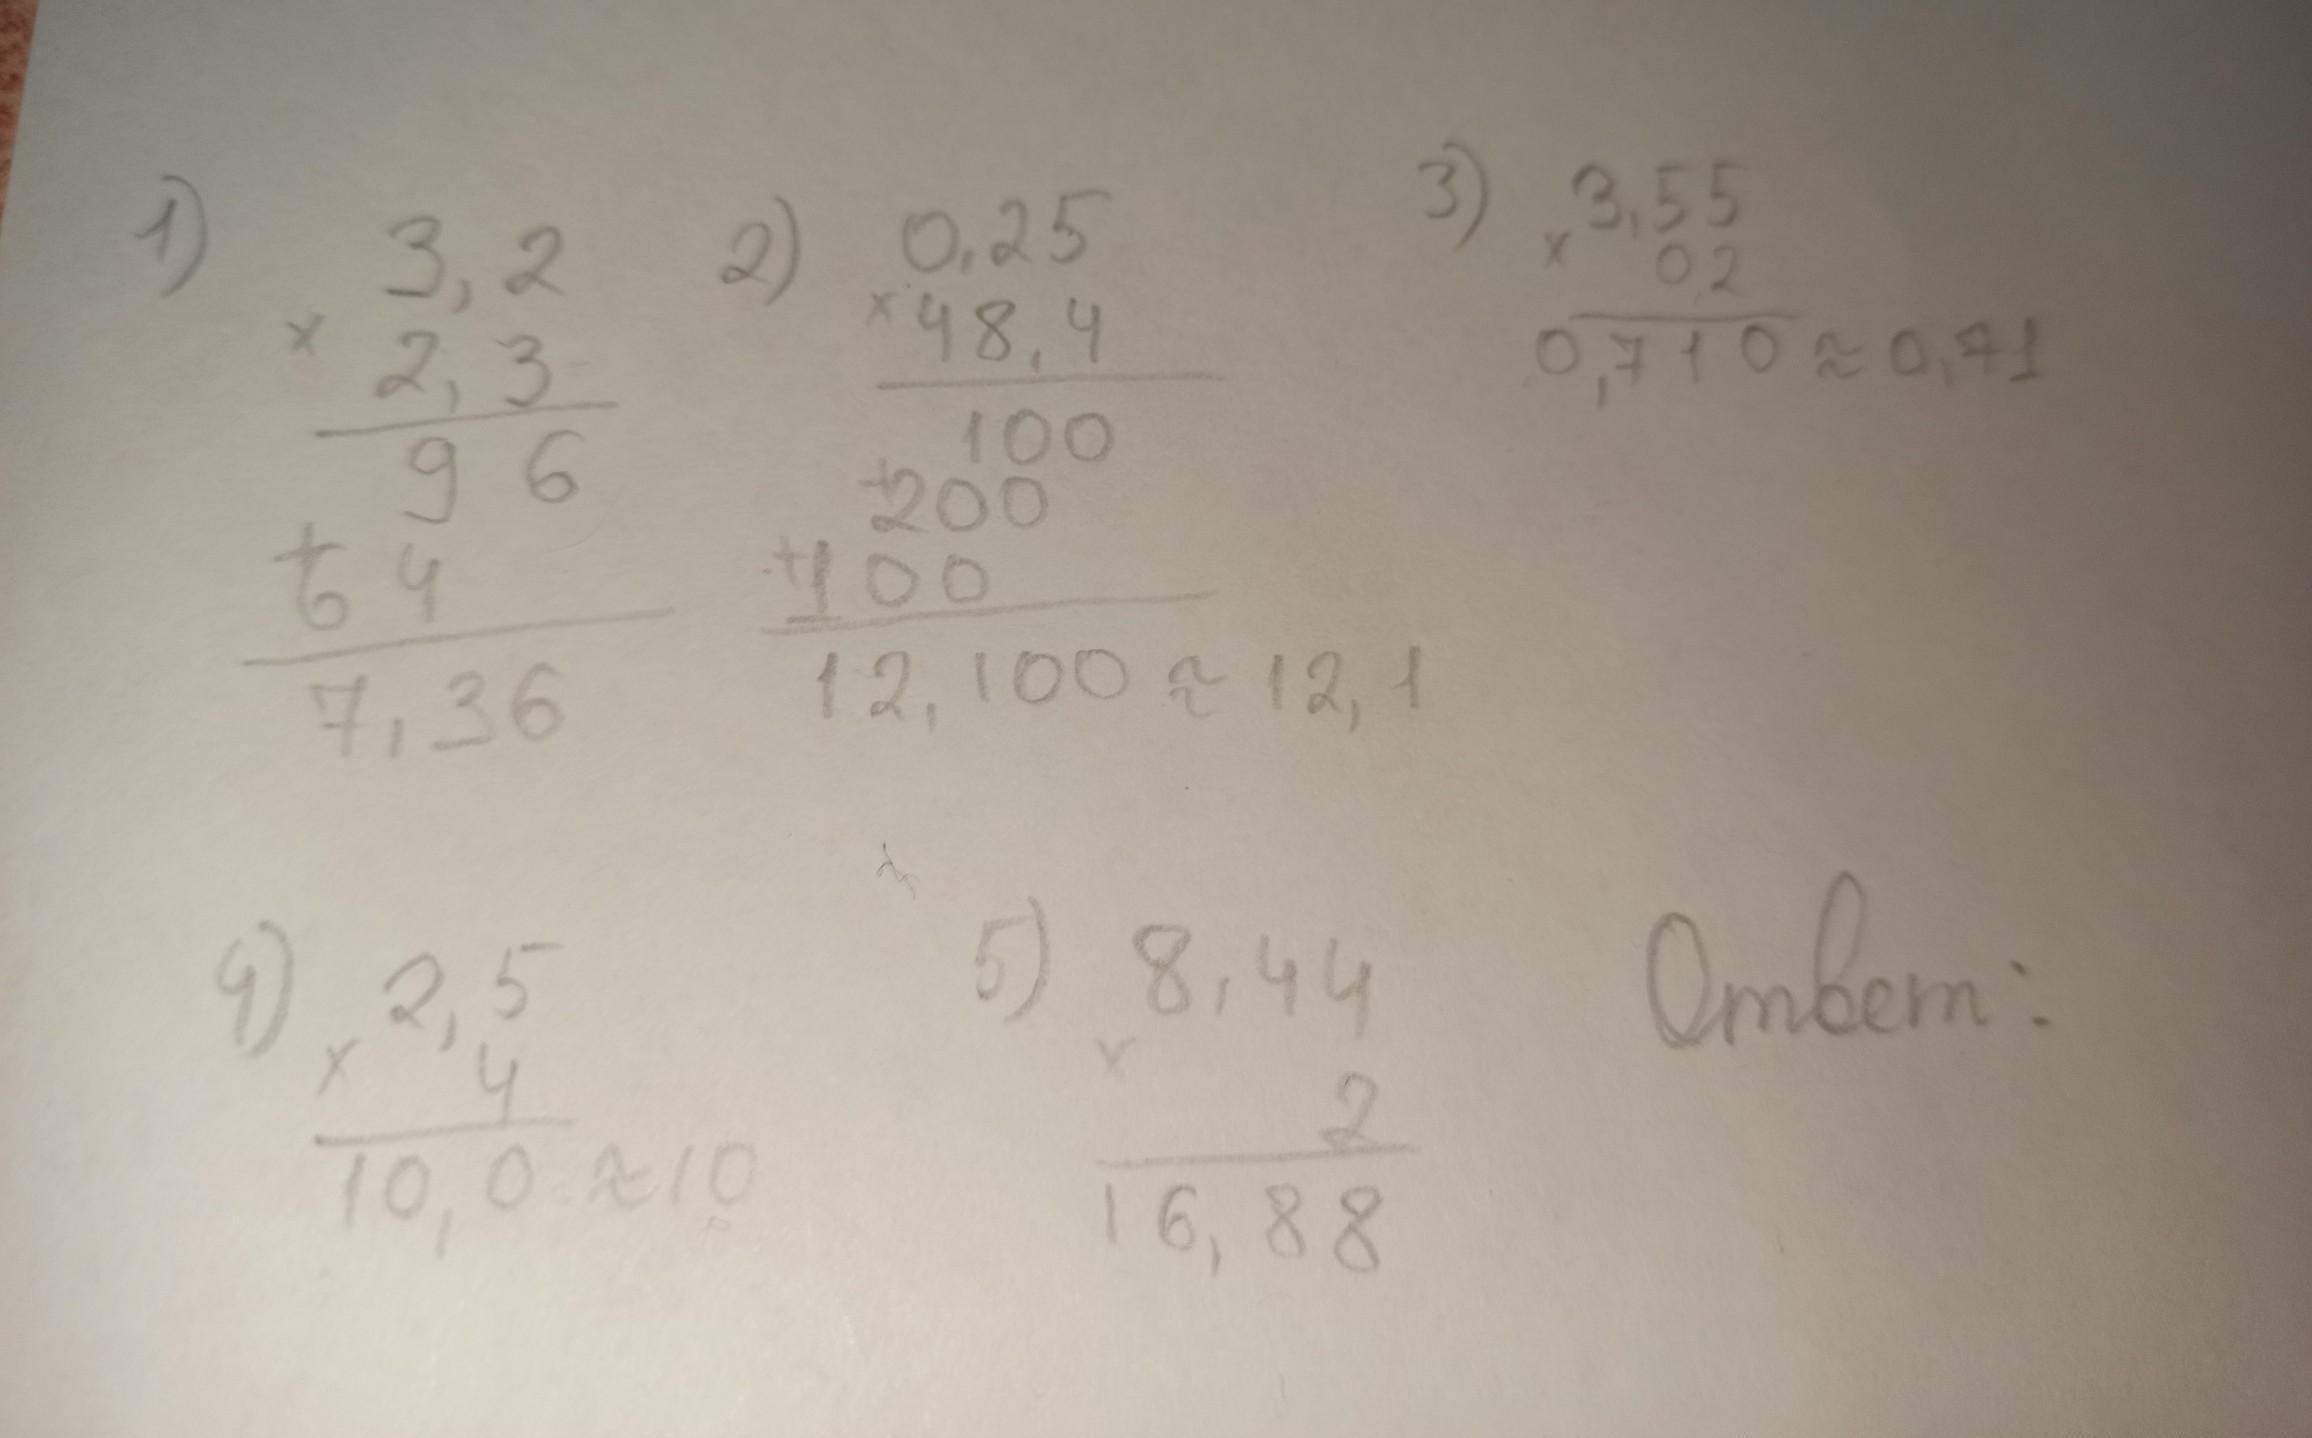 1) 3,2
× 2,3
96
+
64
7,36
2) 0,25
× 48,4
100
+200
+100
12,100 ≈ 12,1
3) × 3,55
0,2
0,710 ≈ 0,71
4) 2,5
× 4
10,0 ≈ 10
5) 8,44
×
2
16,88
Ответ: